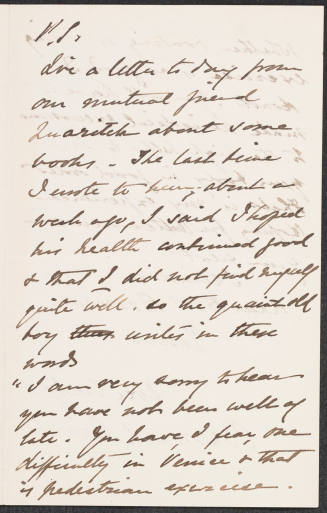 P.S.
I've a letter to day from
our mutual friend
Quaritch about some
books. The last time
I wrote to him, about a
week ago, I said I hoped
his health continued good
& that I did not find myself
quite well. so the quaint old
boy thus writes in these
words
"I am very sorry to hear
you have not been well of
late. You have I fear, one
difficulty in Venice & that
is pedestrian exercise.